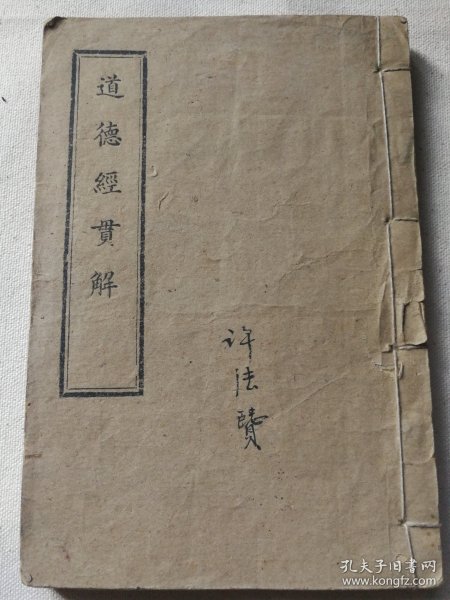 道德經貫解
许法賢
孔夫子旧书网
www.kongfz.com